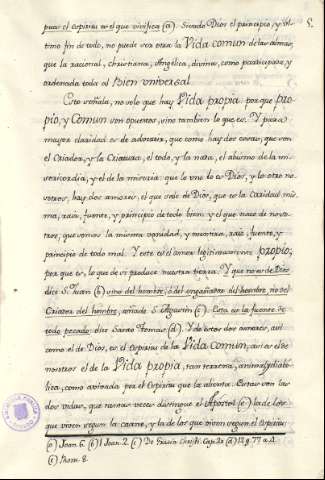 pues el espiritu es el que vivifica (a). Siendo Dios el principio, y ul-
timo fin de todo, no puede ser otra la Vida comun de las almas,
que la racional, christiana, Angelica, divina, como participada, y
ordenada toda al Bien universal.
Esto señala, no solo que hay Vida propia: porque pro-
pio, y Comun son opuestos, sino tambien lo que es. Y para
mayor claridad es de advertir, que como hay dos cosas, que son
el Criador, y la Criatura, el todo, y la nada, el abismo de la mi-
sericordia, y el de la miseria: que lo uno lo es Dios, y lo otro no-
sotros, hay dos amores, el que nace de Dios, que es la Caridad mis-
ma, raiz, fuente, y principio de todo bien: y el que nace de noso-
tros, que somos la misma vanidad, y mentira, raiz, fuente, y
principio de todo mal. Y este es el amor legitimamente propio;
por que es, lo que de si produce nuestra tierra. Y que no es de Dios
dice S. Juan (b) sino del hombre, ò del engañador del hombre, no del
Criador del hombre, añade S. Agustin (c). Esta es la fuente de
todo pecado, dice Santo Tomas (d). Y de estos dos amores, asi
como el de Dios, es el espiritu de la Vida Comun, asi es el de
nosotros el de la Vida propia, tan terrena, animal, y diabo-
lica, como avivada por el espiritu que la alienta. Estas son las
dos vidas, que tantas veces distingue el Apostol (e) la de los
que viven segun la carne, y la de los que viven segun el espiritu
(a) Joan. 6. (b) 1 Joan. 2. (c) De Gratia Christi. Cap. 20 (d) 1.2 q. 77 a. 4
(e) Rom. 8.
5.